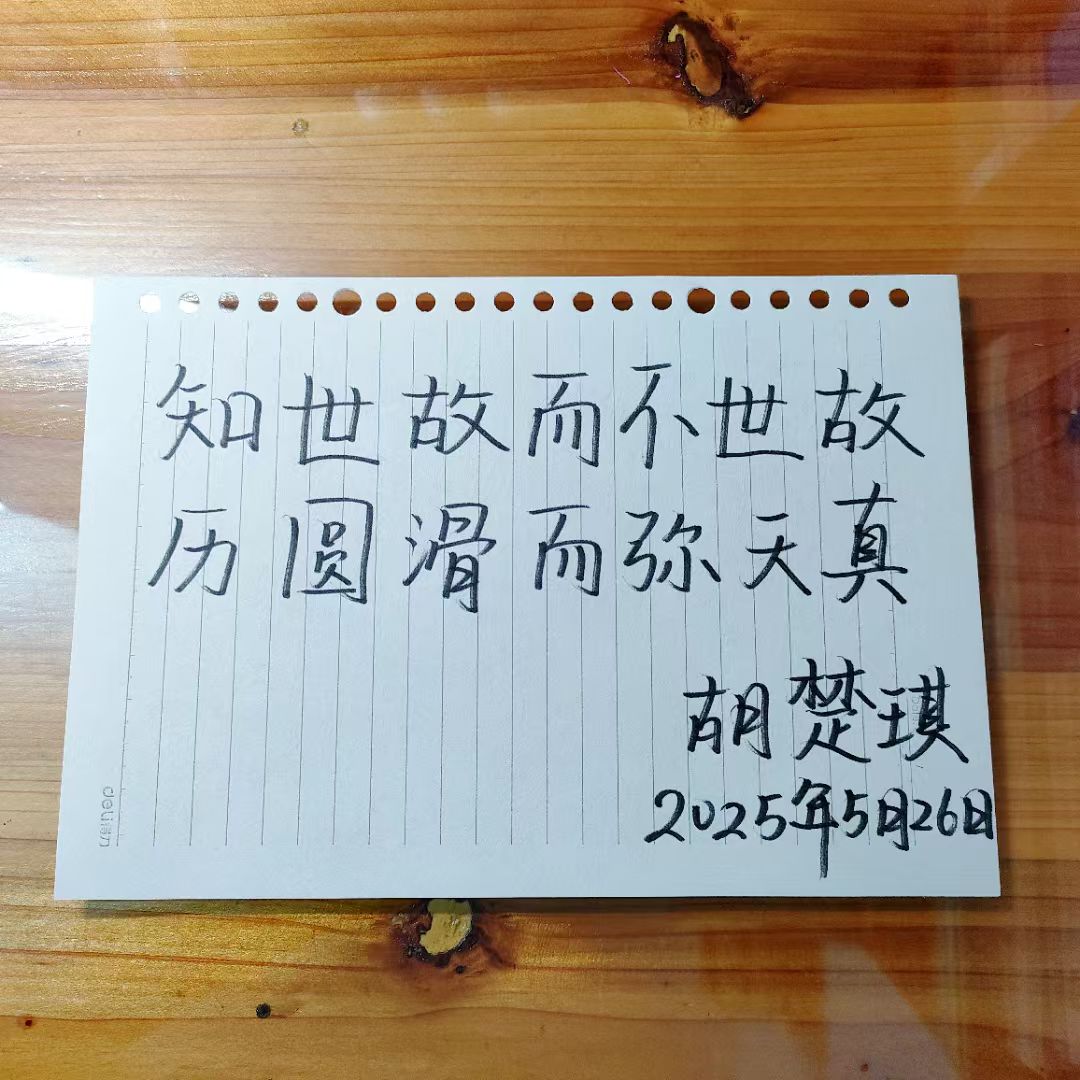 知世故而不世故
历圆滑而弥天真
胡楚琪
2025年5月26日
deli得力